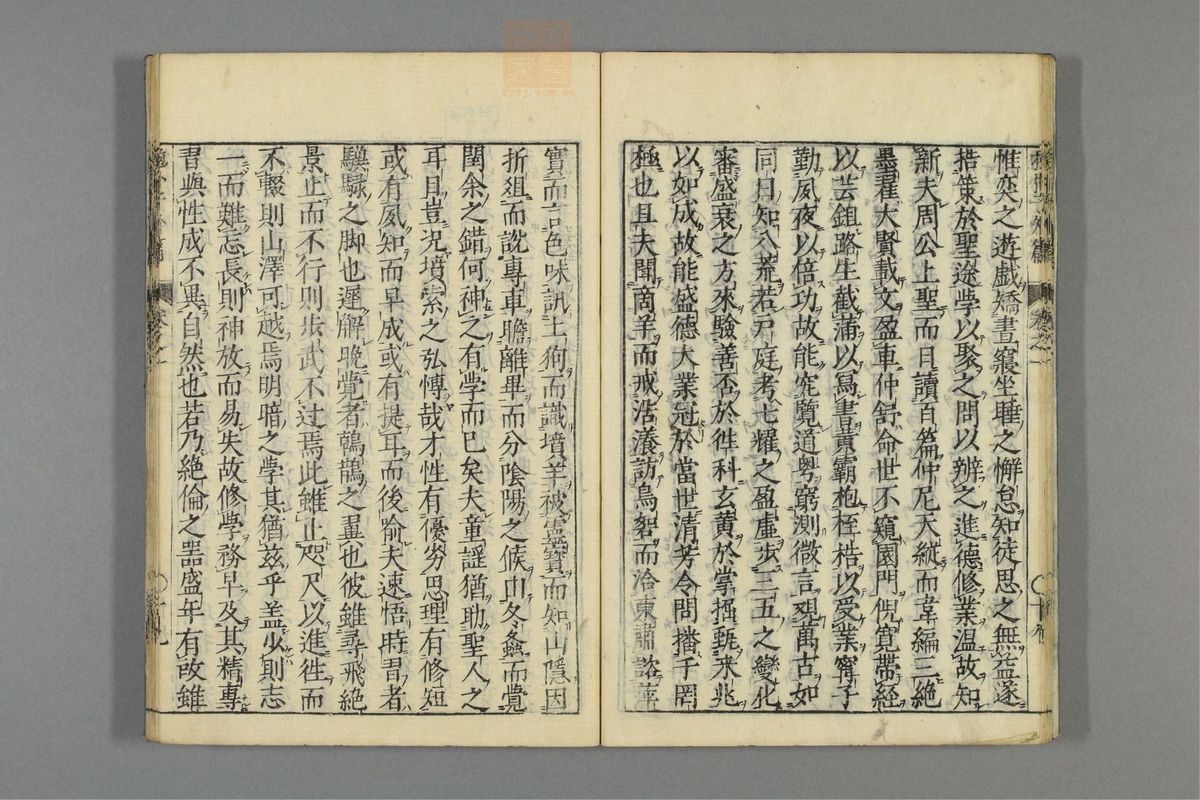 惟奕之遊戲矯晝寢坐睡之懈怠知徒思之無益遂
捂策於聖途學以聚之問以辨之進德修業温故知
新夫周公上聖而日讀百篇仲尼天縱而韋編三絶
墨翟大賢載文盈車仲舒命世不窺園門倪寛帶經
以芸鉏路生截蒲以冩書黄霸抱桎梏以受業甯子
勤夙夜以倍功故能究覽道奥窮測微言觀萬古如
同日知八荒若戸庭考七耀之盈虚步三五之變化
審盛衰之方來驗善否於徃科玄黄於掌握甄未兆
以如成故能盛德大業冠於當世清芳令問播千罔
極也且夫聞商羊而戒浩瀁訪鳥砮而洽東肅諮萍
實而言色味訊土狗而識墳羊披靈寶而知山隱因
折俎而說專車瞻離畢而分陰陽之候由冬螽而覺
閏余之錯何神之有学而已矣夫童謡猶助聖人之
耳目豈况墳索之弘博哉才性有優劣思理有修短
或有夙知而早成或有提耳而後喻夫速悟時習者
驥騄之脚也遲解晩覚者鶉鵲之翼也彼雖尋飛絶
景止而不行則步武不过焉此雖止咫尺以進徃而
不輟則山澤可越焉明暗之學其猶兹乎盖少則志
一而難忘長則神放而易失故修學務早及其精專
習與性成不異自然也若乃絶倫之噐盛年有故雖
卷之一
卷之一
十九